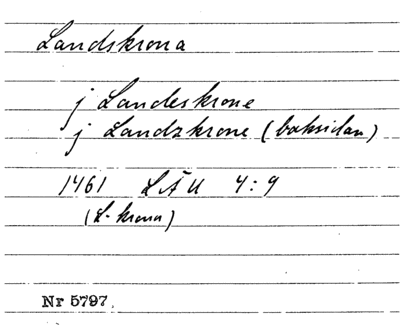 Landskrona
j Landeskrone
j Landzkrone (baksidan)
1461 LÄU 4:9
(L-krona)
Nr 5797.